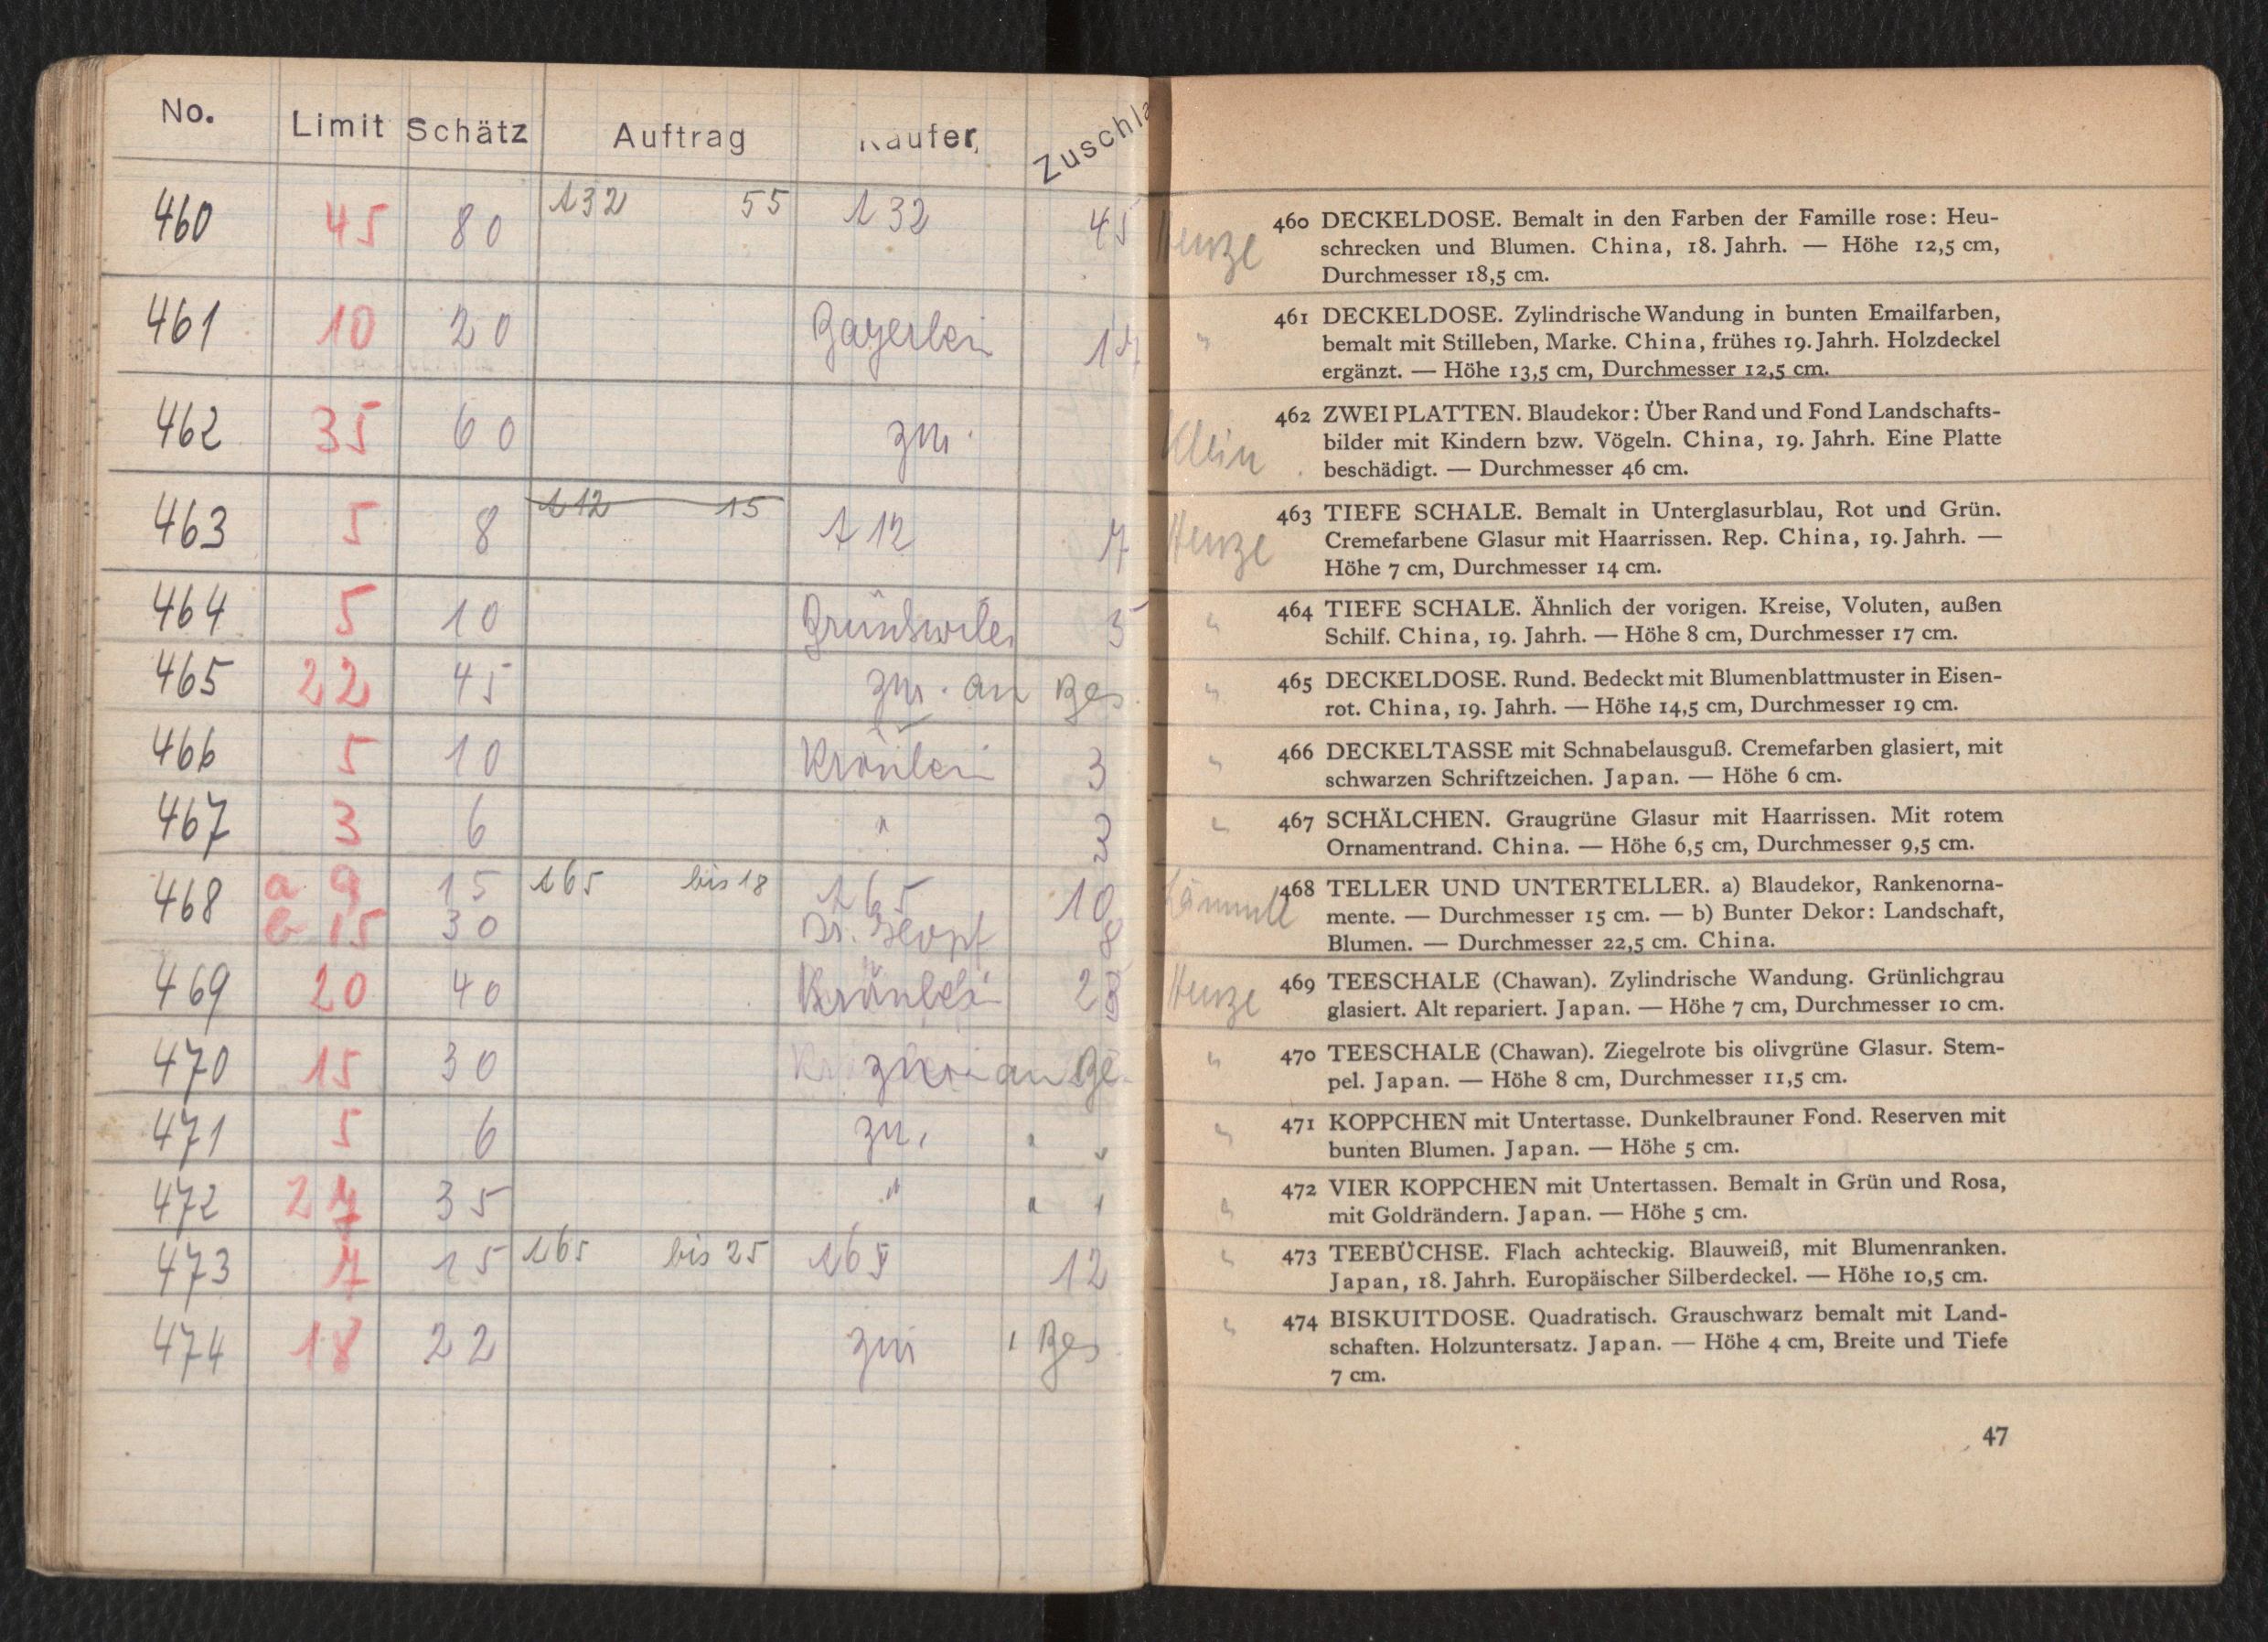 No. Limit Schätz Auftrag Käufer Zuschla
460 45 80 132 55 132 45
461 10 20 Bayerlein
462 35 60 zur.
463 5 8 112 15 112 7
464 5 10
465 22 45 zur. an Bes.
466 5 10 Kränlein 3
467 3 6 "
468 a. 9 15 165 bis 18 165 10
b 15 30 Dr. 8
469 20 40 Kränlein
470 15 30 zur an Be
471 5 6 zur " "
472 35 " " "
473 7 15 165 bis 25 165 12
474 18 22 zur " Bes.
Henze
460 DECKELDOSE. Bemalt in den Farben der Famille rose: Heu-
schrecken und Blumen. China, 18. Jahrh. — Höhe 12,5 cm,
Durchmesser 18,5 cm.
" 461 DECKELDOSE. Zylindrische Wandung in bunten Emailfarben,
bemalt mit Stilleben, Marke. China, frühes 19. Jahrh. Holzdeckel
ergänzt. — Höhe 13,5 cm, Durchmesser 12,5 cm.
Klein
462 ZWEI PLATTEN. Blaudekor: Über Rand und Fond Landschafts-
bilder mit Kindern bzw. Vögeln. China, 19. Jahrh. Eine Platte
beschädigt. — Durchmesser 46 cm.
Henze
463 TIEFE SCHALE. Bemalt in Unterglasurblau, Rot und Grün.
Cremefarbene Glasur mit Haarrissen. Rep. China, 19. Jahrh. —
Höhe 7 cm, Durchmesser 14 cm.
" 464 TIEFE SCHALE. Ähnlich der vorigen. Kreise, Voluten, außen
Schilf. China, 19. Jahrh. — Höhe 8 cm, Durchmesser 17 cm.
" 465 DECKELDOSE. Rund. Bedeckt mit Blumenblattmuster in Eisen-
rot. China, 19. Jahrh. — Höhe 14,5 cm, Durchmesser 19 cm.
" 466 DECKELTASSE mit Schnabelausguß. Cremefarben glasiert, mit
schwarzen Schriftzeichen. Japan. — Höhe 6 cm.
" 467 SCHÄLCHEN. Graugrüne Glasur mit Haarrissen. Mit rotem
Ornamentrand. China. — Höhe 6,5 cm, Durchmesser 9,5 cm.
Lämmle
468 TELLER UND UNTERTELLER. a) Blaudekor, Rankenorna-
mente. — Durchmesser 15 cm. — b) Bunter Dekor: Landschaft,
Blumen. — Durchmesser 22,5 cm. China.
Henze
469 TEESCHALE (Chawan). Zylindrische Wandung. Grünlichgrau
glasiert. Alt repariert. Japan. — Höhe 7 cm, Durchmesser 10 cm.
" 470 TEESCHALE (Chawan). Ziegelrote bis olivgrüne Glasur. Stem-
pel. Japan. — Höhe 8 cm, Durchmesser 11,5 cm.
" 471 KOPPCHEN mit Untertasse. Dunkelbrauner Fond. Reserven mit
bunten Blumen. Japan. — Höhe 5 cm.
" 472 VIER KOPPCHEN mit Untertassen. Bemalt in Grün und Rosa,
mit Goldrändern. Japan. — Höhe 5 cm.
" 473 TEEBÜCHSE. Flach achteckig. Blauweiß, mit Blumenranken.
Japan, 18. Jahrh. Europäischer Silberdeckel. — Höhe 10,5 cm.
" 474 BISKUITDOSE. Quadratisch. Grauschwarz bemalt mit Land-
schaften. Holzuntersatz. Japan. — Höhe 4 cm, Breite und Tiefe
7 cm.
47